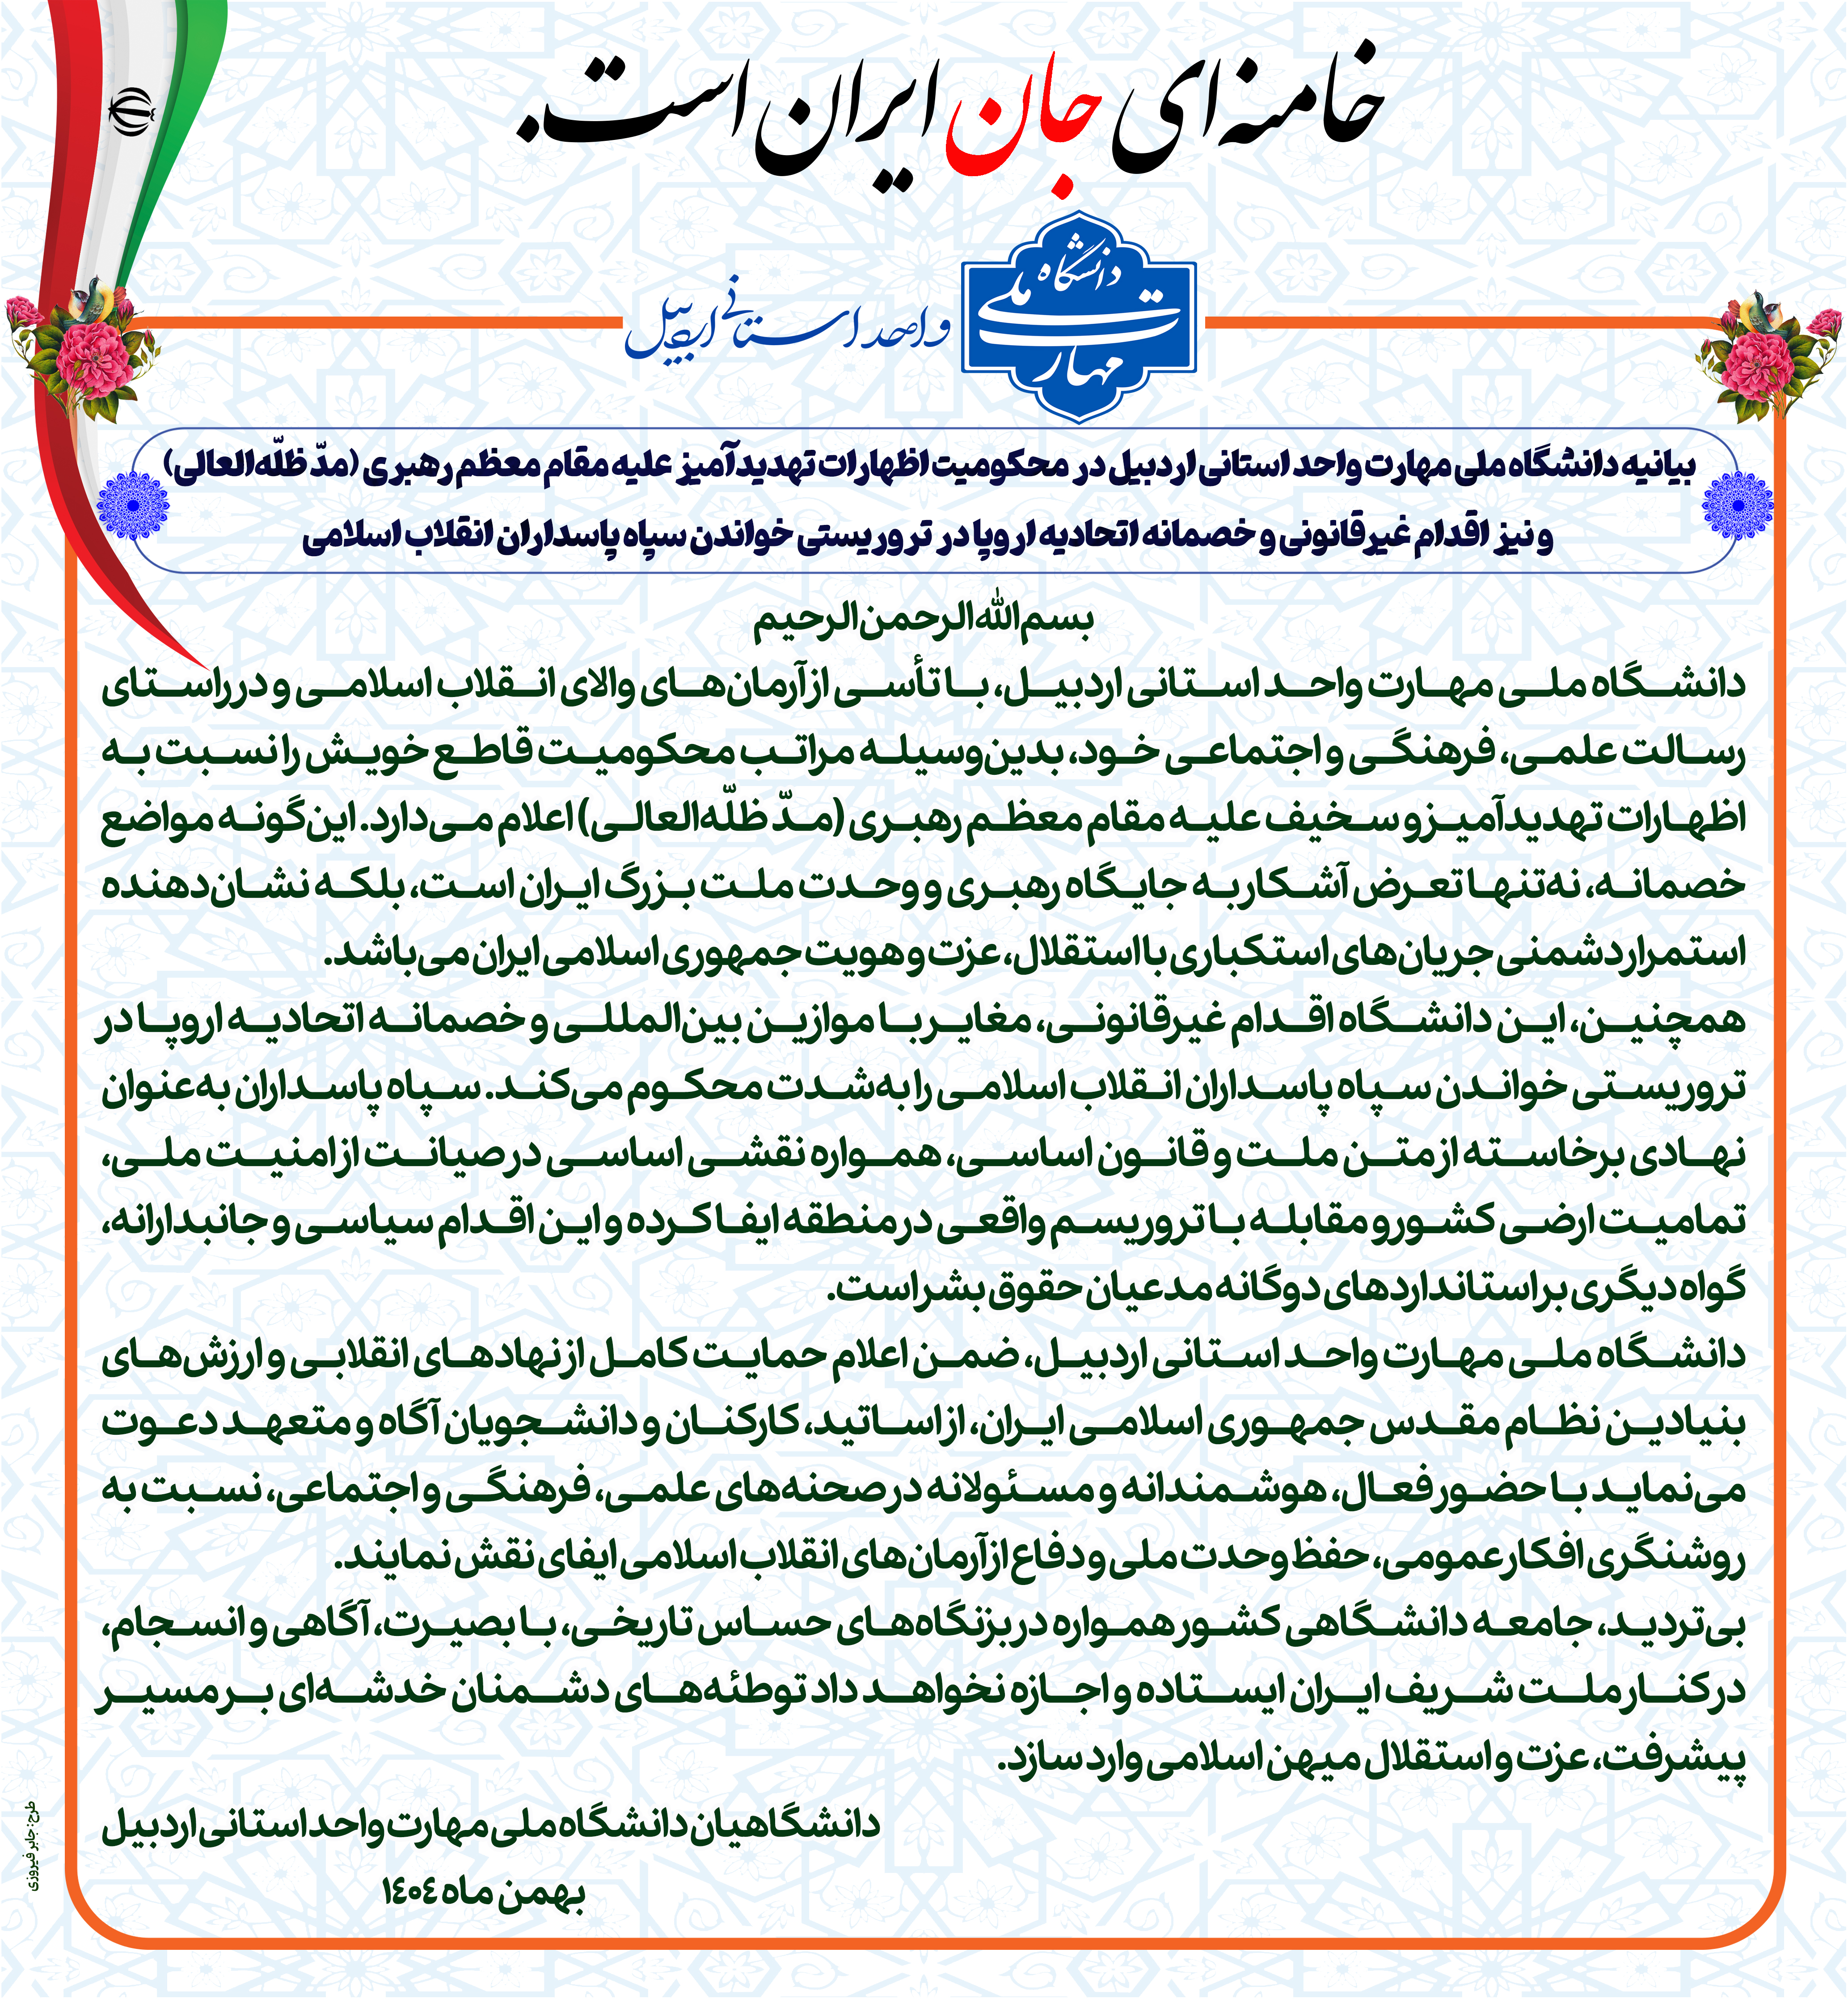 خامنه‌ای جان ایران است.
دانشگاه ملی مهارت
واحد استانی اردبیل
بیانیه دانشگاه ملی مهارت واحد استانی اردبیل در محکومیت اظهارات تهدیدآمیز علیه مقام معظم رهبری (مدّ ظلّه‌العالی)
و نیز اقدام غیرقانونی و خصمانه اتحادیه اروپا در تروریستی خواندن سپاه پاسداران انقلاب اسلامی
بسم‌الله‌الرحمن‌الرحیم
دانشگاه ملی مهارت واحد استانی اردبیل، با تأسی از آرمان‌های والای انقلاب اسلامی و در راستای
رسالت علمی، فرهنگی و اجتماعی خود، بدین‌وسیله مراتب محکومیت قاطع خویش را نسبت به
اظهارات تهدیدآمیز و سخیف علیه مقام معظم رهبری (مدّ ظلّه‌العالی) اعلام می‌دارد. این‌گونه مواضع
خصمانه، نه‌تنها تعرض آشکار به جایگاه رهبری و وحدت ملت بزرگ ایران است، بلکه نشان‌دهنده
استمرار دشمنی جریان‌های استکباری با استقلال، عزت و هویت جمهوری اسلامی ایران می‌باشد.
همچنین، این دانشگاه اقدام غیرقانونی، مغایر با موازین بین‌المللی و خصمانه اتحادیه اروپا در
تروریستی خواندن سپاه پاسداران انقلاب اسلامی را به‌شدت محکوم می‌کند. سپاه پاسداران به‌عنوان
نهادی برخاسته از متن ملت و قانون اساسی، همواره نقشی اساسی در صیانت از امنیت ملی،
تمامیت ارضی کشور و مقابله با تروریسم واقعی در منطقه ایفا کرده و این اقدام سیاسی و جانبدارانه،
گواه دیگری بر استانداردهای دوگانه مدعیان حقوق بشر است.
دانشگاه ملی مهارت واحد استانی اردبیل، ضمن اعلام حمایت کامل از نهادهای انقلابی و ارزش‌های
بنیادین نظام مقدس جمهوری اسلامی ایران، از اساتید، کارکنان و دانشجویان آگاه و متعهد دعوت
می‌نماید با حضور فعال، هوشمندانه و مسئولانه در صحنه‌های علمی، فرهنگی و اجتماعی، نسبت به
روشنگری افکار عمومی، حفظ وحدت ملی و دفاع از آرمان‌های انقلاب اسلامی ایفای نقش نمایند.
بی‌تردید، جامعه دانشگاهی کشور همواره در بزنگاه‌های حساس تاریخی، با بصیرت، آگاهی و انسجام،
در کنار ملت شریف ایران ایستاده و اجازه نخواهد داد توطئه‌های دشمنان خدشه‌ای بر مسیر
پیشرفت، عزت و استقلال میهن اسلامی وارد سازد.
دانشگاهیان دانشگاه ملی مهارت واحد استانی اردبیل
بهمن ماه ۱۴۰۴
طرح: جابر فیروزی